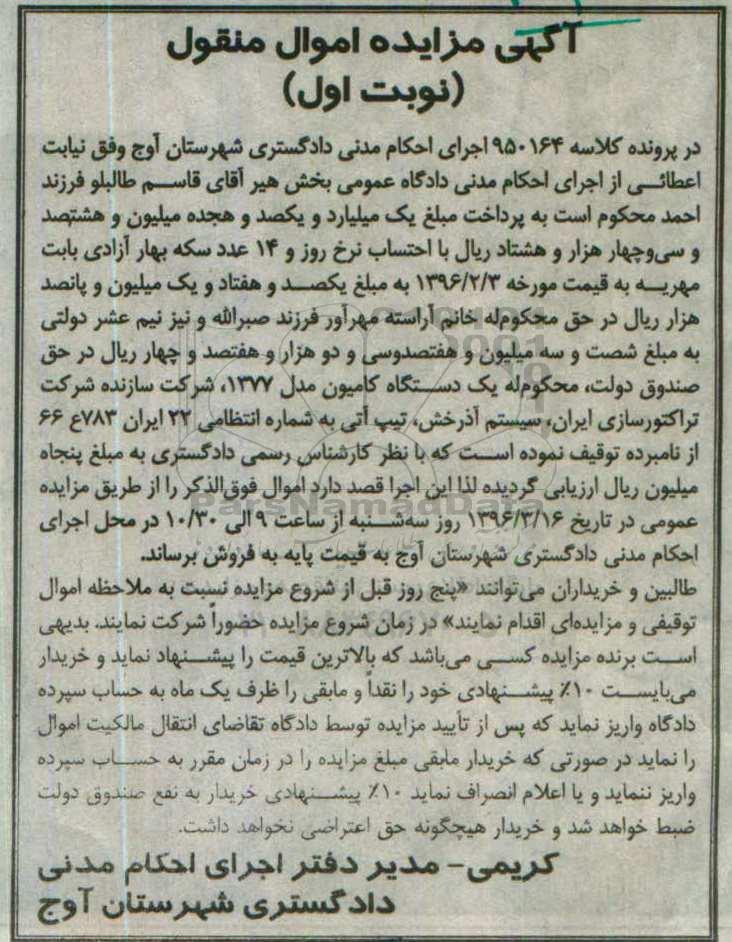 آگهی مزایده اموال منقول
(نوبت اول)
در پرونده کلاسه ۹۵۰۱۶۴ اجرای احکام مدنی دادگستری شهرستان آوج وفق نیابت
اعطائی از اجرای احکام مدنی دادگاه عمومی بخش هیر آقای قاسم طالبلو فرزند
احمد محکوم است به پرداخت مبلغ یک میلیارد و یکصد و هجده میلیون و هشتصد
و سی‌وچهار هزار و هشتاد ریال با احتساب نرخ روز و ۱۴ عدد سکه بهار آزادی بابت
مهریه به قیمت مورخه ۱۳۹۶/۲/۳ به مبلغ یکصد و هفتاد و یک میلیون و پانصد
هزار ریال در حق محکوم‌له خانم آراسته مهرآور فرزند صبرالله و نیز نیم عشر دولتی
به مبلغ شصت و سه میلیون و هفتصدوسی و دو هزار و هفتصد و چهار ریال در حق
صندوق دولت، محکوم‌له یک دستگاه کامیون مدل ۱۳۷۷، شرکت سازنده شرکت
تراکتورسازی ایران، سیستم آذرخش، تیپ آتی به شماره انتظامی ۲۲ ایران ۷۸۳ع ۶۶
از نامبرده توقیف نموده است که با نظر کارشناس رسمی دادگستری به مبلغ پنجاه
میلیون ریال ارزیابی گردیده لذا این اجرا قصد دارد اموال فوق‌الذکر را از طریق مزایده
عمومی در تاریخ ۱۳۹۶/۳/۱۶ روز سه‌شنبه از ساعت ۹ الی ۱۰/۳۰ در محل اجرای
احکام مدنی دادگستری شهرستان آوج به قیمت پایه به فروش برساند.
طالبین و خریداران می‌توانند «پنج روز قبل از شروع مزایده نسبت به ملاحظه اموال
توقیفی و مزایده‌ای اقدام نمایند» در زمان شروع مزایده حضوراً شرکت نمایند. بدیهی
است برنده مزایده کسی می‌باشد که بالاترین قیمت را پیشنهاد نماید و خریدار
می‌بایست ۱۰٪ پیشنهادی خود را نقداً و مابقی را ظرف یک ماه به حساب سپرده
دادگاه واریز نماید که پس از تأیید مزایده توسط دادگاه تقاضای انتقال مالکیت اموال
را نماید در صورتی که خریدار مابقی مبلغ مزایده را در زمان مقرر به حساب سپرده
واریز ننماید و یا اعلام انصراف نماید ۱۰٪ پیشنهادی خریدار به نفع صندوق دولت
ضبط خواهد شد و خریدار هیچگونه حق اعتراضی نخواهد داشت.
کریمی- مدیر دفتر اجرای احکام مدنی
دادگستری شهرستان آوج
ParsNamadData